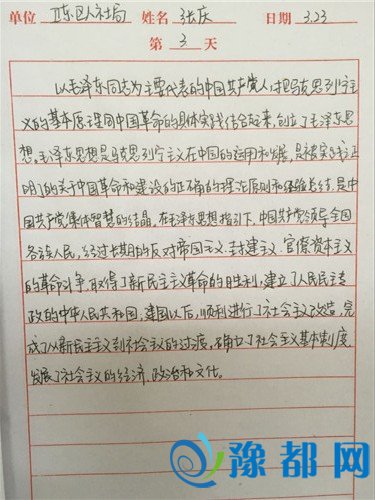 单位 江东区人社局 姓名 张庆 日期 3.23
第 3 天
以毛泽东同志为主要代表的中国共产党人,把马克思列宁主
义的基本原理同中国革命的具体实践结合起来,创立了毛泽东思
想。毛泽东思想是马克思列宁主义在中国的运用和发展,是被实践证
明了的关于中国革命和建设的正确的理论原则和经验总结,是中
国共产党集体智慧的结晶。在毛泽东思想指引下,中国共产党领导全国
各族人民,经过长期的反对帝国主义、封建主义、官僚资本主义
的革命斗争,取得了新民主主义革命的胜利,建立了人民民主专
政的中华人民共和国,建国以后,顺利进行了社会主义改造,完
成了从新民主主义到社会主义的过渡,确立了社会主义基本制度,
发展了社会主义的经济、政治和文化。
豫都网